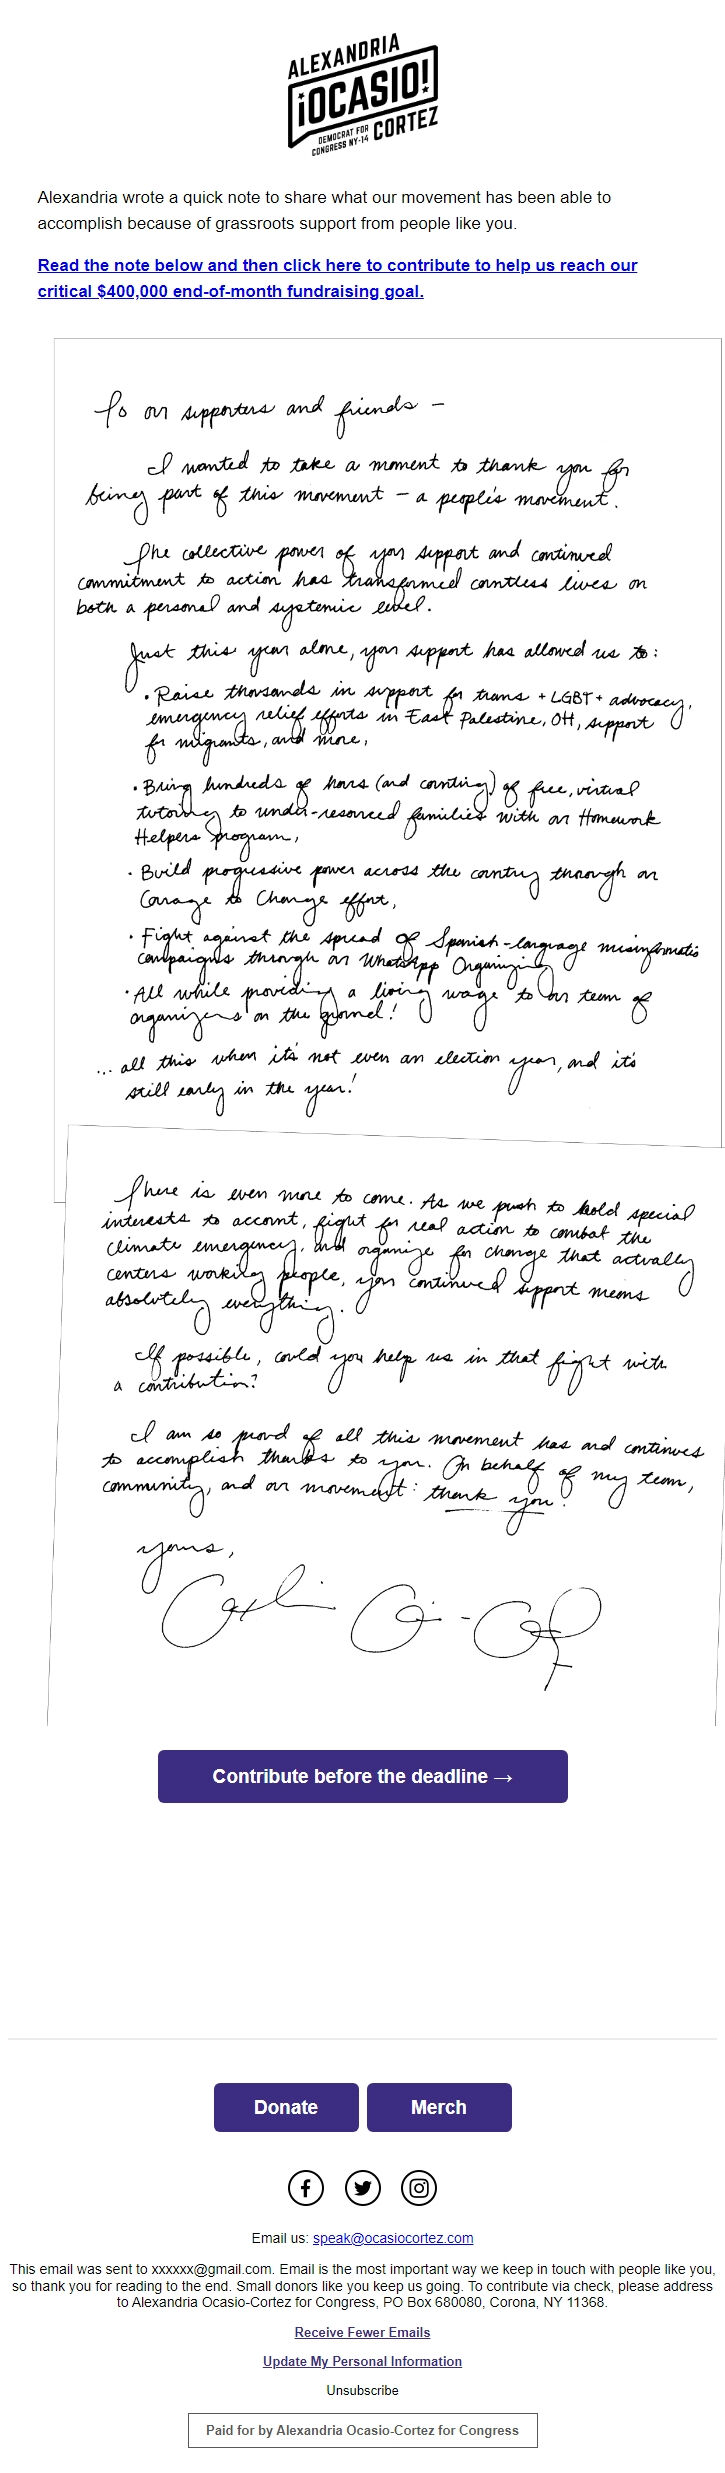 ALEXANDRIA
¡OCASIO!
DEMOCRAT FOR
CONGRESS NY-14
CORTEZ
Alexandria wrote a quick note to share what our movement has been able to
accomplish because of grassroots support from people like you.
Read the note below and then click here to contribute to help us reach our
critical $400,000 end-of-month fundraising goal.
To our supporters and friends –
I wanted to take a moment to thank you for
being part of this movement – a people's movement.
The collective power of your support and continued
commitment to action has transformed countless lives on
both a personal and systemic level.
Just this year alone, your support has allowed us to:
• Raise thousands in support for trans + LGBT+ advocacy,
emergency relief efforts in East Palestine, OH, support
for migrants, and more,
• Bring hundreds of hours (and counting) of free, virtual
tutoring to under-resourced families with our Homework
Helpers program,
• Build progressive power across the country through our
Courage to Change effort,
• Fight against the spread of Spanish-language misinformatio
campaigns through our WhatsApp Organizing
• All while providing a living wage to our team of
organizers on the ground!
... all this when it's not even an election year, and it's
still early in the year!
There is even more to come. As we push to hold special
interests to account, fight for real action to combat the
climate emergency, and organize for change that actually
centers working people, your continued support means
absolutely everything.
If possible, could you help us in that fight with
a contribution?
I am so proud of all this movement has and continues
to accomplish thanks to you. On behalf of my team,
community, and our movement: thank you!
yours,
Contribute before the deadline →
Donate
Merch
Email us: speak@ocasiocortez.com
This email was sent to xxxxxx@gmail.com. Email is the most important way we keep in touch with people like you,
so thank you for reading to the end. Small donors like you keep us going. To contribute via check, please address
to Alexandria Ocasio-Cortez for Congress, PO Box 680080, Corona, NY 11368.
Receive Fewer Emails
Update My Personal Information
Unsubscribe
Paid for by Alexandria Ocasio-Cortez for Congress